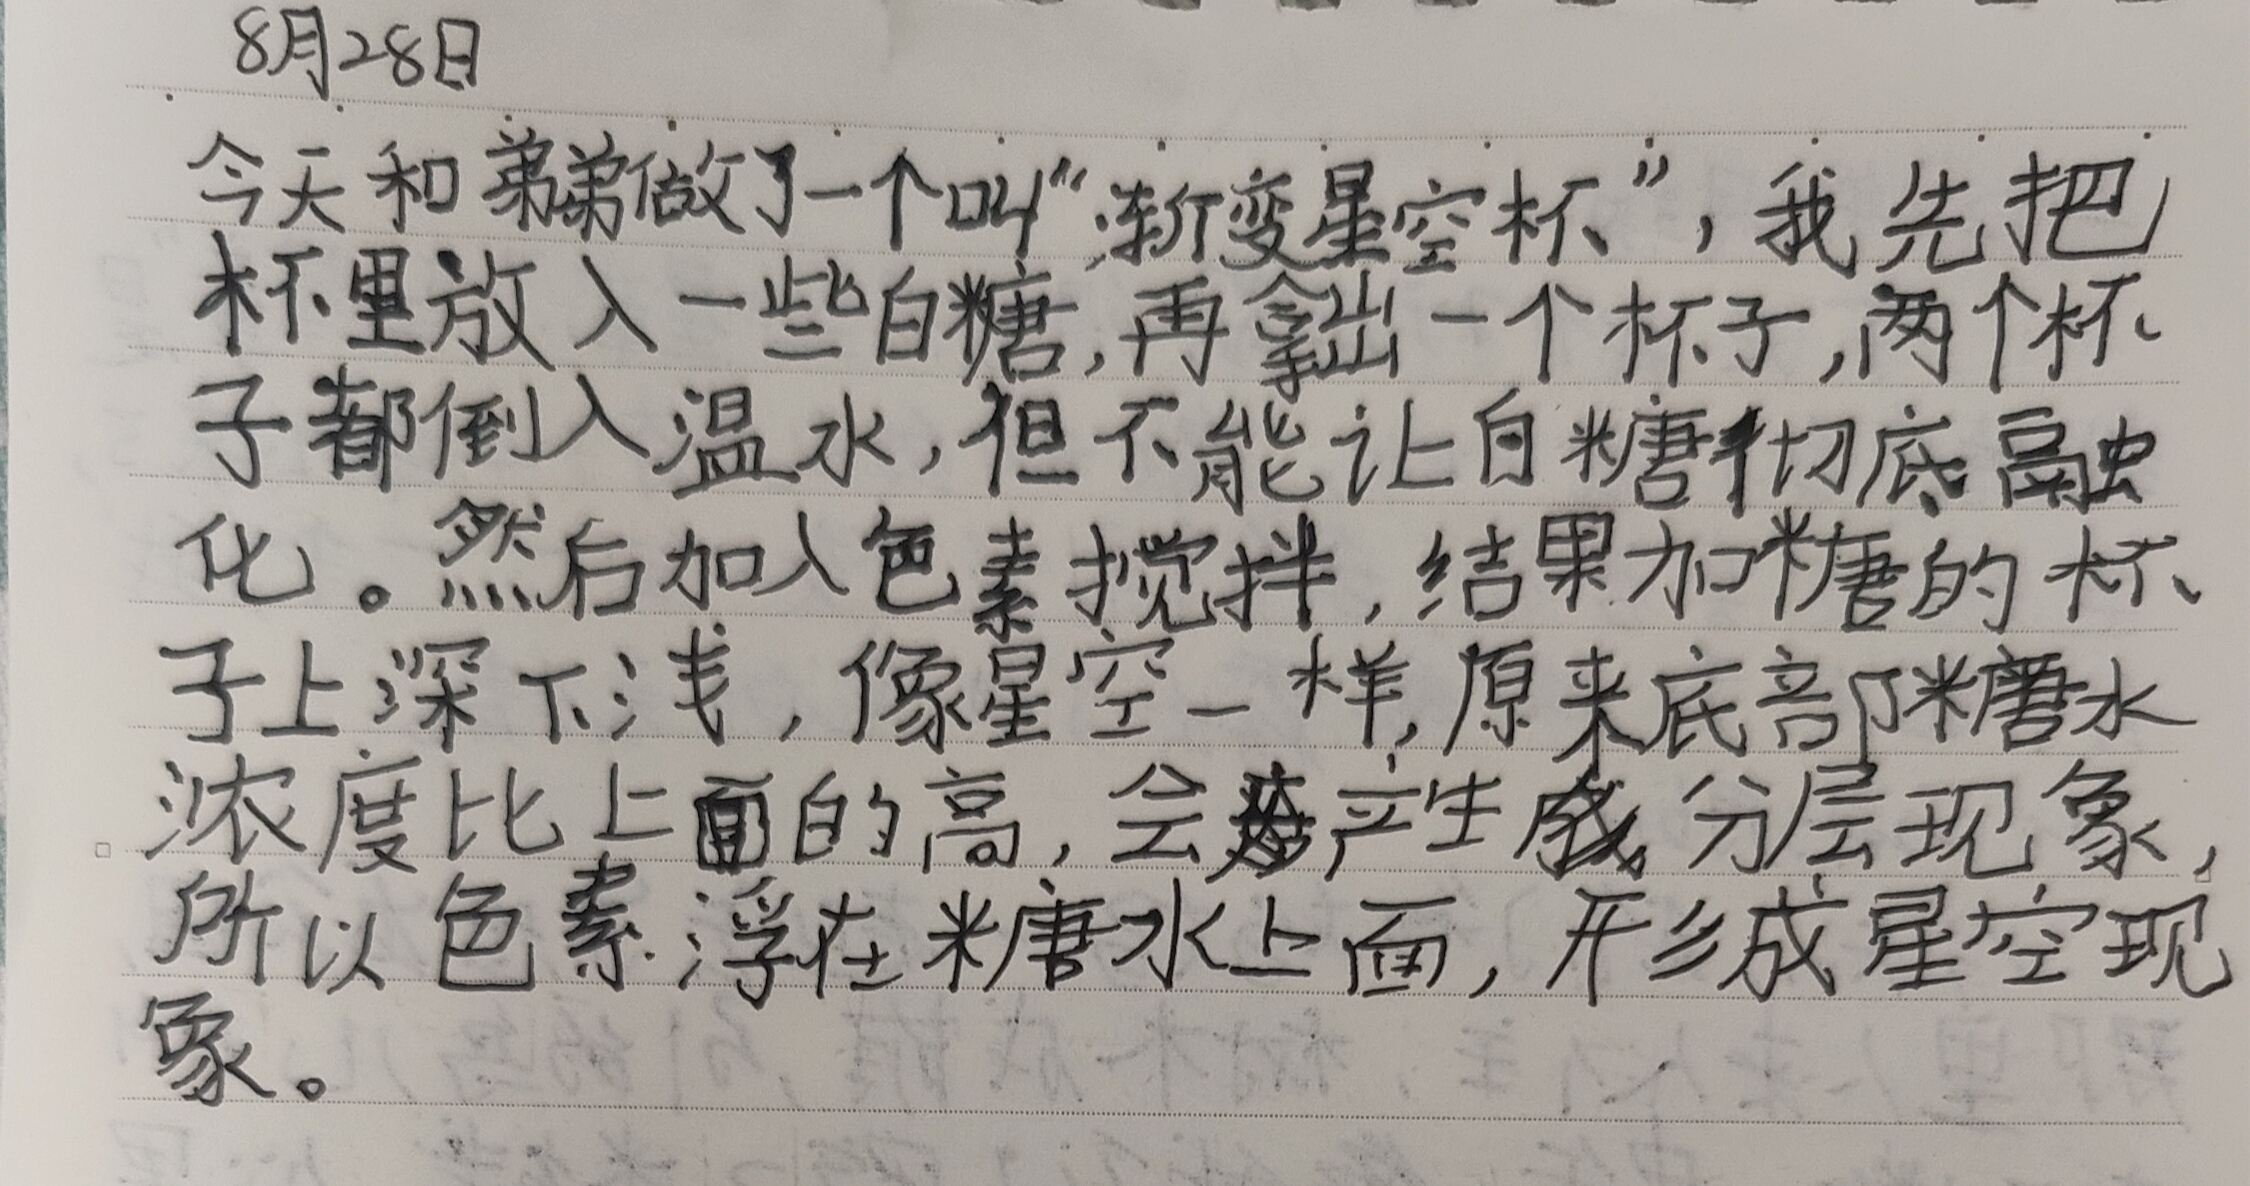 8月28日
今天和弟弟做了一个叫“渐变星空杯”，我先把
杯里放入一些白糖，再拿出一个杯子，两个杯
子都倒入温水，但不能让白糖彻底融
化。然后加入色素搅拌，结果加糖的杯
子上深下浅，像星空一样，原来底部糖水
浓度比上面的高，会产生成分层现象，
所以色素浮在糖水上面，形成星空现
象。